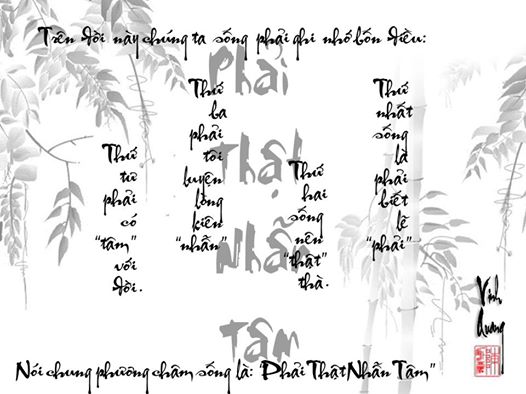 Trên đời này chúng ta sống phải ghi nhớ bốn điều:
Thứ nhất sống là phải biết lẽ “phải”
Thứ hai sống nên “thật” thà.
Thứ ba phải tôi luyện lòng kiên “nhẫn”
Thứ tư phải có “tâm” với đời.
Phải
Thật
Nhẫn
Tâm
Vinh
Quang
Nói chung phương châm sống là: “Phải Thật Nhẫn Tâm”